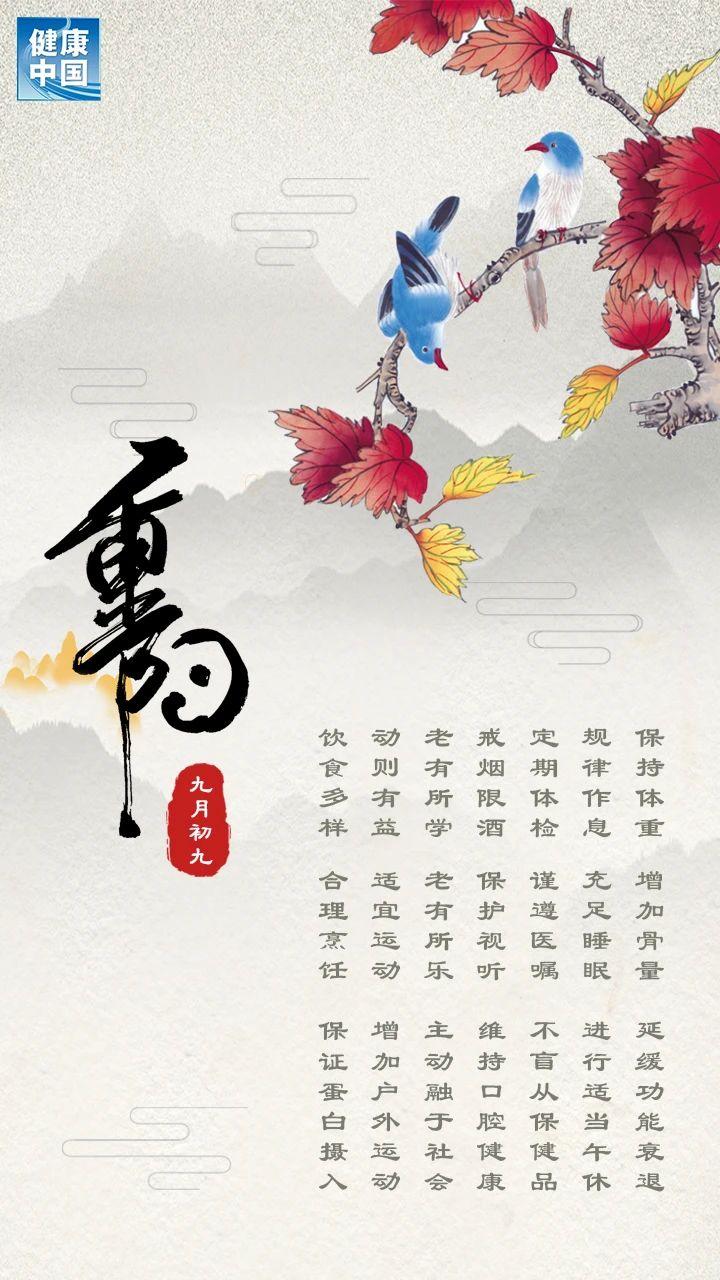 健康
中国
重阳
九月初九
保持体重 增加骨量 延缓功能衰退
规律作息 充足睡眠 进行适当午休
定期体检 谨遵医嘱 不盲从保健品
戒烟限酒 保护视听 维持口腔健康
老有所学 老有所乐 主动融于社会
动则有益 适宜运动 增加户外运动
饮食多样 合理烹饪 保证蛋白摄入